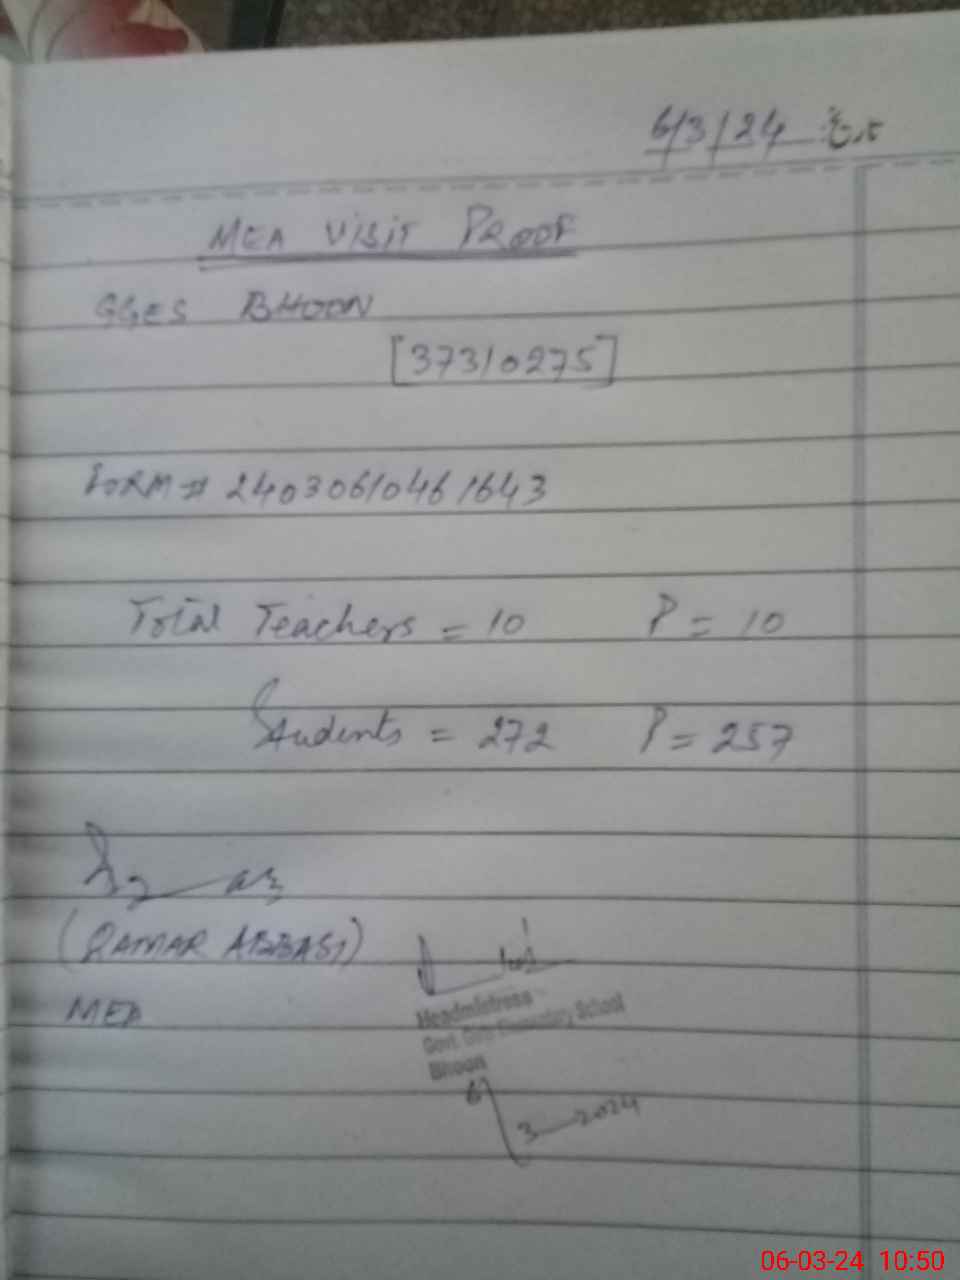 6/3/24
MEA VISIT PROOF
GGES BHOON
[37310275]
FORM # 24030610461643
Total Teachers = 10 P = 10
Students = 272 P = 257
(QAMAR ABBAS)
MEA
Headmistress
Govt. Girls Elementary School
Bhoon
6/3-2024
06-03-24 10:50